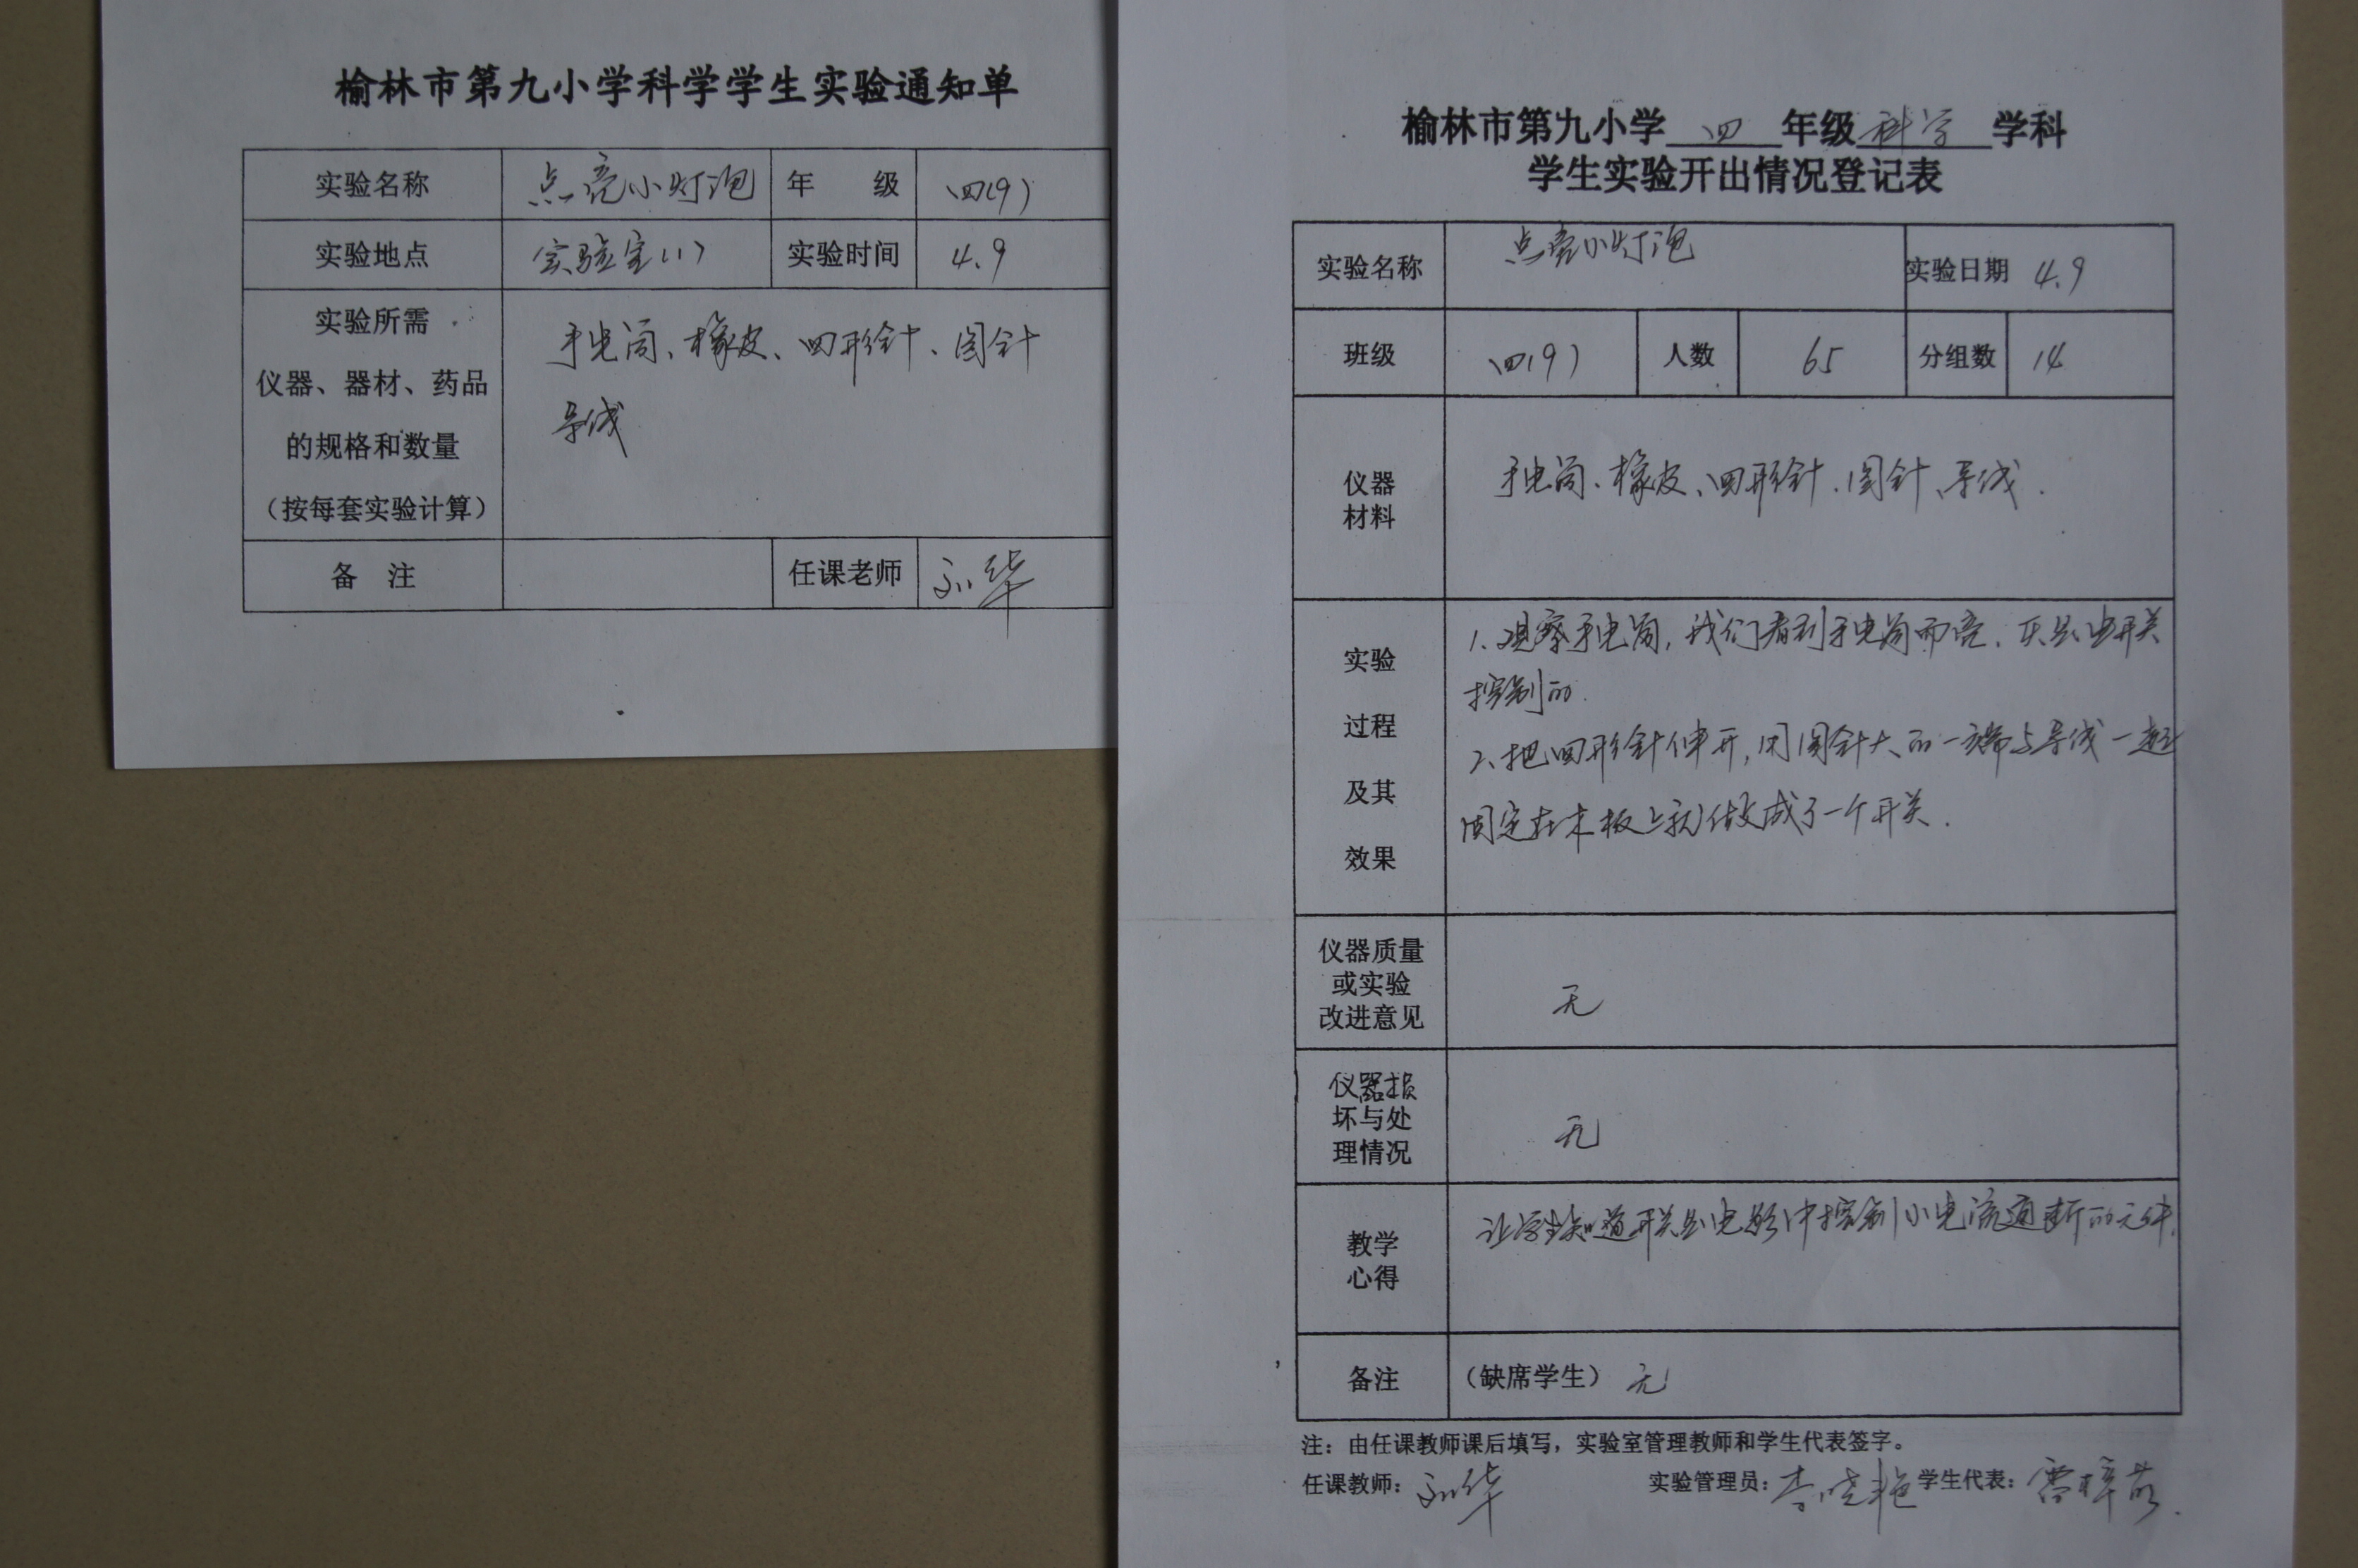 榆林市第九小学科学学生实验通知单
实验名称 点亮小灯泡 年 级 四(9)
实验地点 实验室(1) 实验时间 4.9
实验所需
仪器、器材、药品
的规格和数量
(按每套实验计算)
手电筒、橡皮、回形针、图针
导线
备 注 任课老师 刘华
榆林市第九小学 四 年级 科学 学科
学生实验开出情况登记表
实验名称 点亮小灯泡 实验日期 4.9
班级 四(9) 人数 65 分组数 14
仪器
材料
手电筒、橡皮、回形针、图针、导线.
实验
过程
及其
效果
1、观察手电筒,我们看到手电筒而亮、灭是由开关
控制的.
2、把回形针伸开,用图针大的一端与导线一起
固定在木板上就做成了一个开关.
仪器质量
或实验
改进意见
无
仪器损
坏与处
理情况
无
教学
心得
让学生知道开关是电路中控制小电流通断的元件.
备注 (缺席学生) 无
注：由任课教师课后填写，实验室管理教师和学生代表签字。
任课教师： 刘华 实验管理员： 李晓艳 学生代表： 雷梓